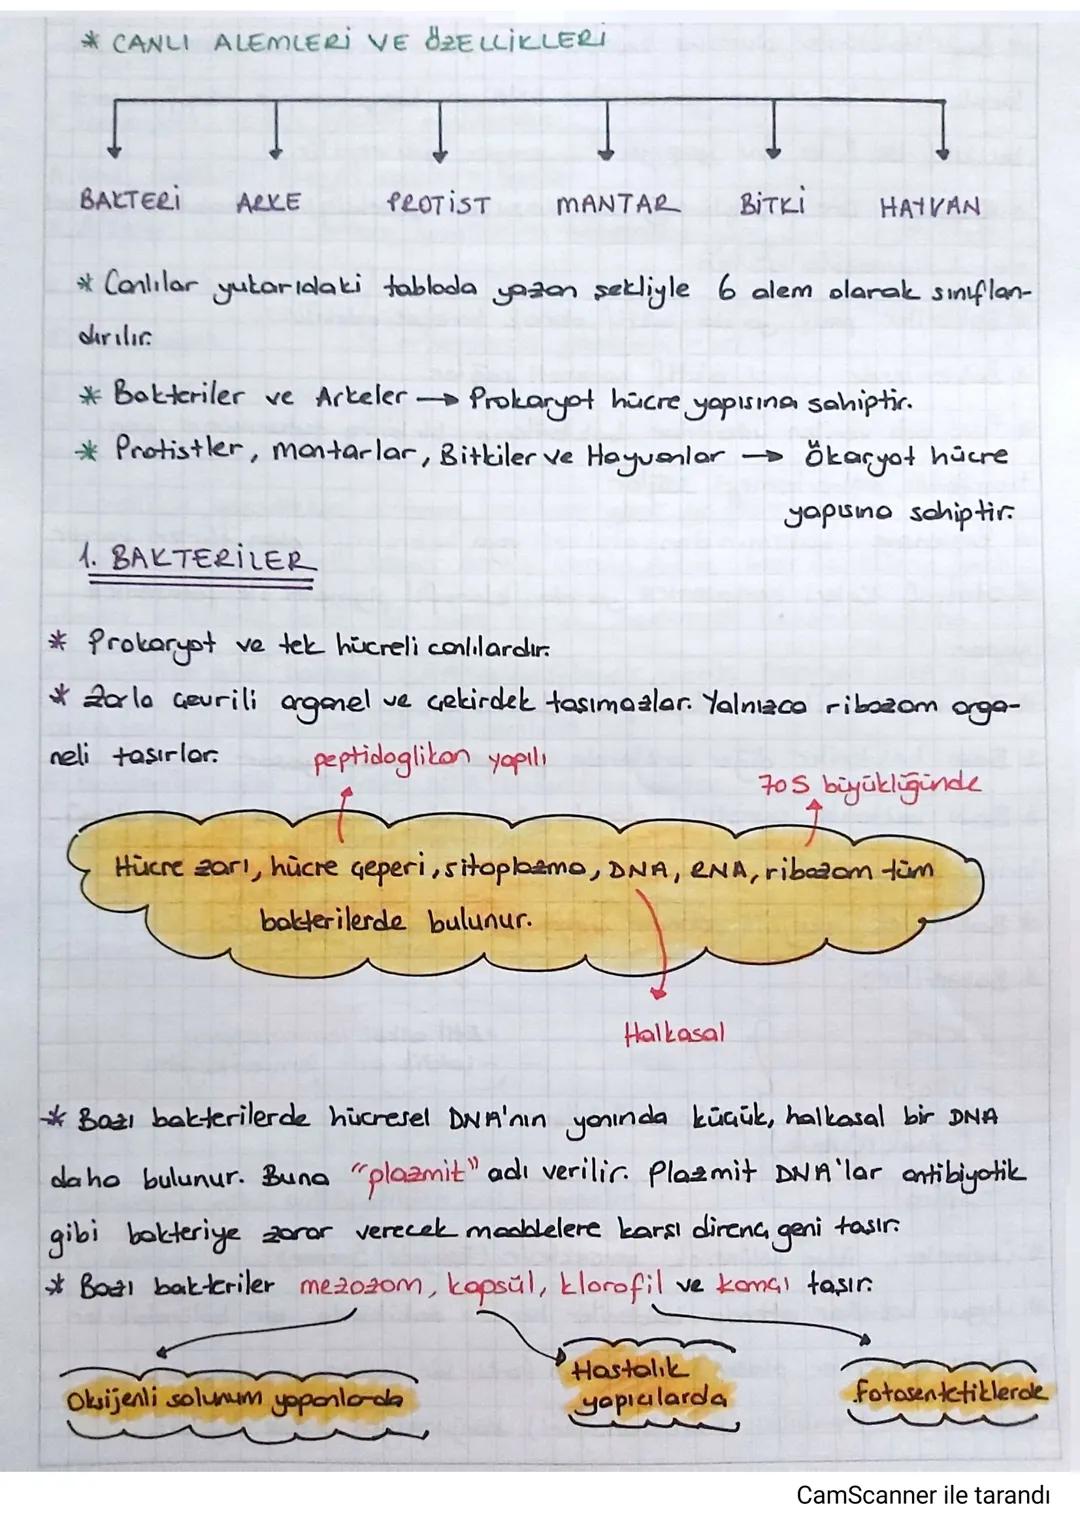 * CANLI ALEMLERİ VE ÖZELLİKLERİ
BAKTERİ ARKE PROTİST MANTAR BİTKİ HAYVAN
* Canlılar yukarıdaki tabloda yazan şekliyle 6 alem olarak sınıflan-
dırılır.
* Bakteriler ve Arkeler → Prokaryot hücre yapısına sahiptir.
* Protistler, mantarlar, Bitkiler ve Hayvanlar → Ökaryot hücre
yapısına sahiptir.
1. BAKTERİLER
* Prokaryot ve tek hücreli canlılardır.
* Zarla çevrili organel ve çekirdek taşımazlar. Yalnızca ribozom orga-
neli taşırlar.
peptidoglikan yapılı
70S büyüklüğünde
Hücre zarı, hücre çeperi, sitoplazma, DNA, RNA, ribozom tüm
bakterilerde bulunur.
Halkasal
* Bazı bakterilerde hücresel DNA'nın yanında küçük, halkasal bir DNA
daha bulunur. Buna "plazmit" adı verilir. Plazmit DNA'lar antibiyotik
gibi bakteriye zarar verecek maddelere karşı direnç geni taşır.
* Bazı bakteriler mezozom, kapsül, klorofil ve kamçı taşır.
Oksijenli solunum yapanlarda
Hastalık
yapıcılarda
fotosentetiklerde
CamScanner ile tarandı